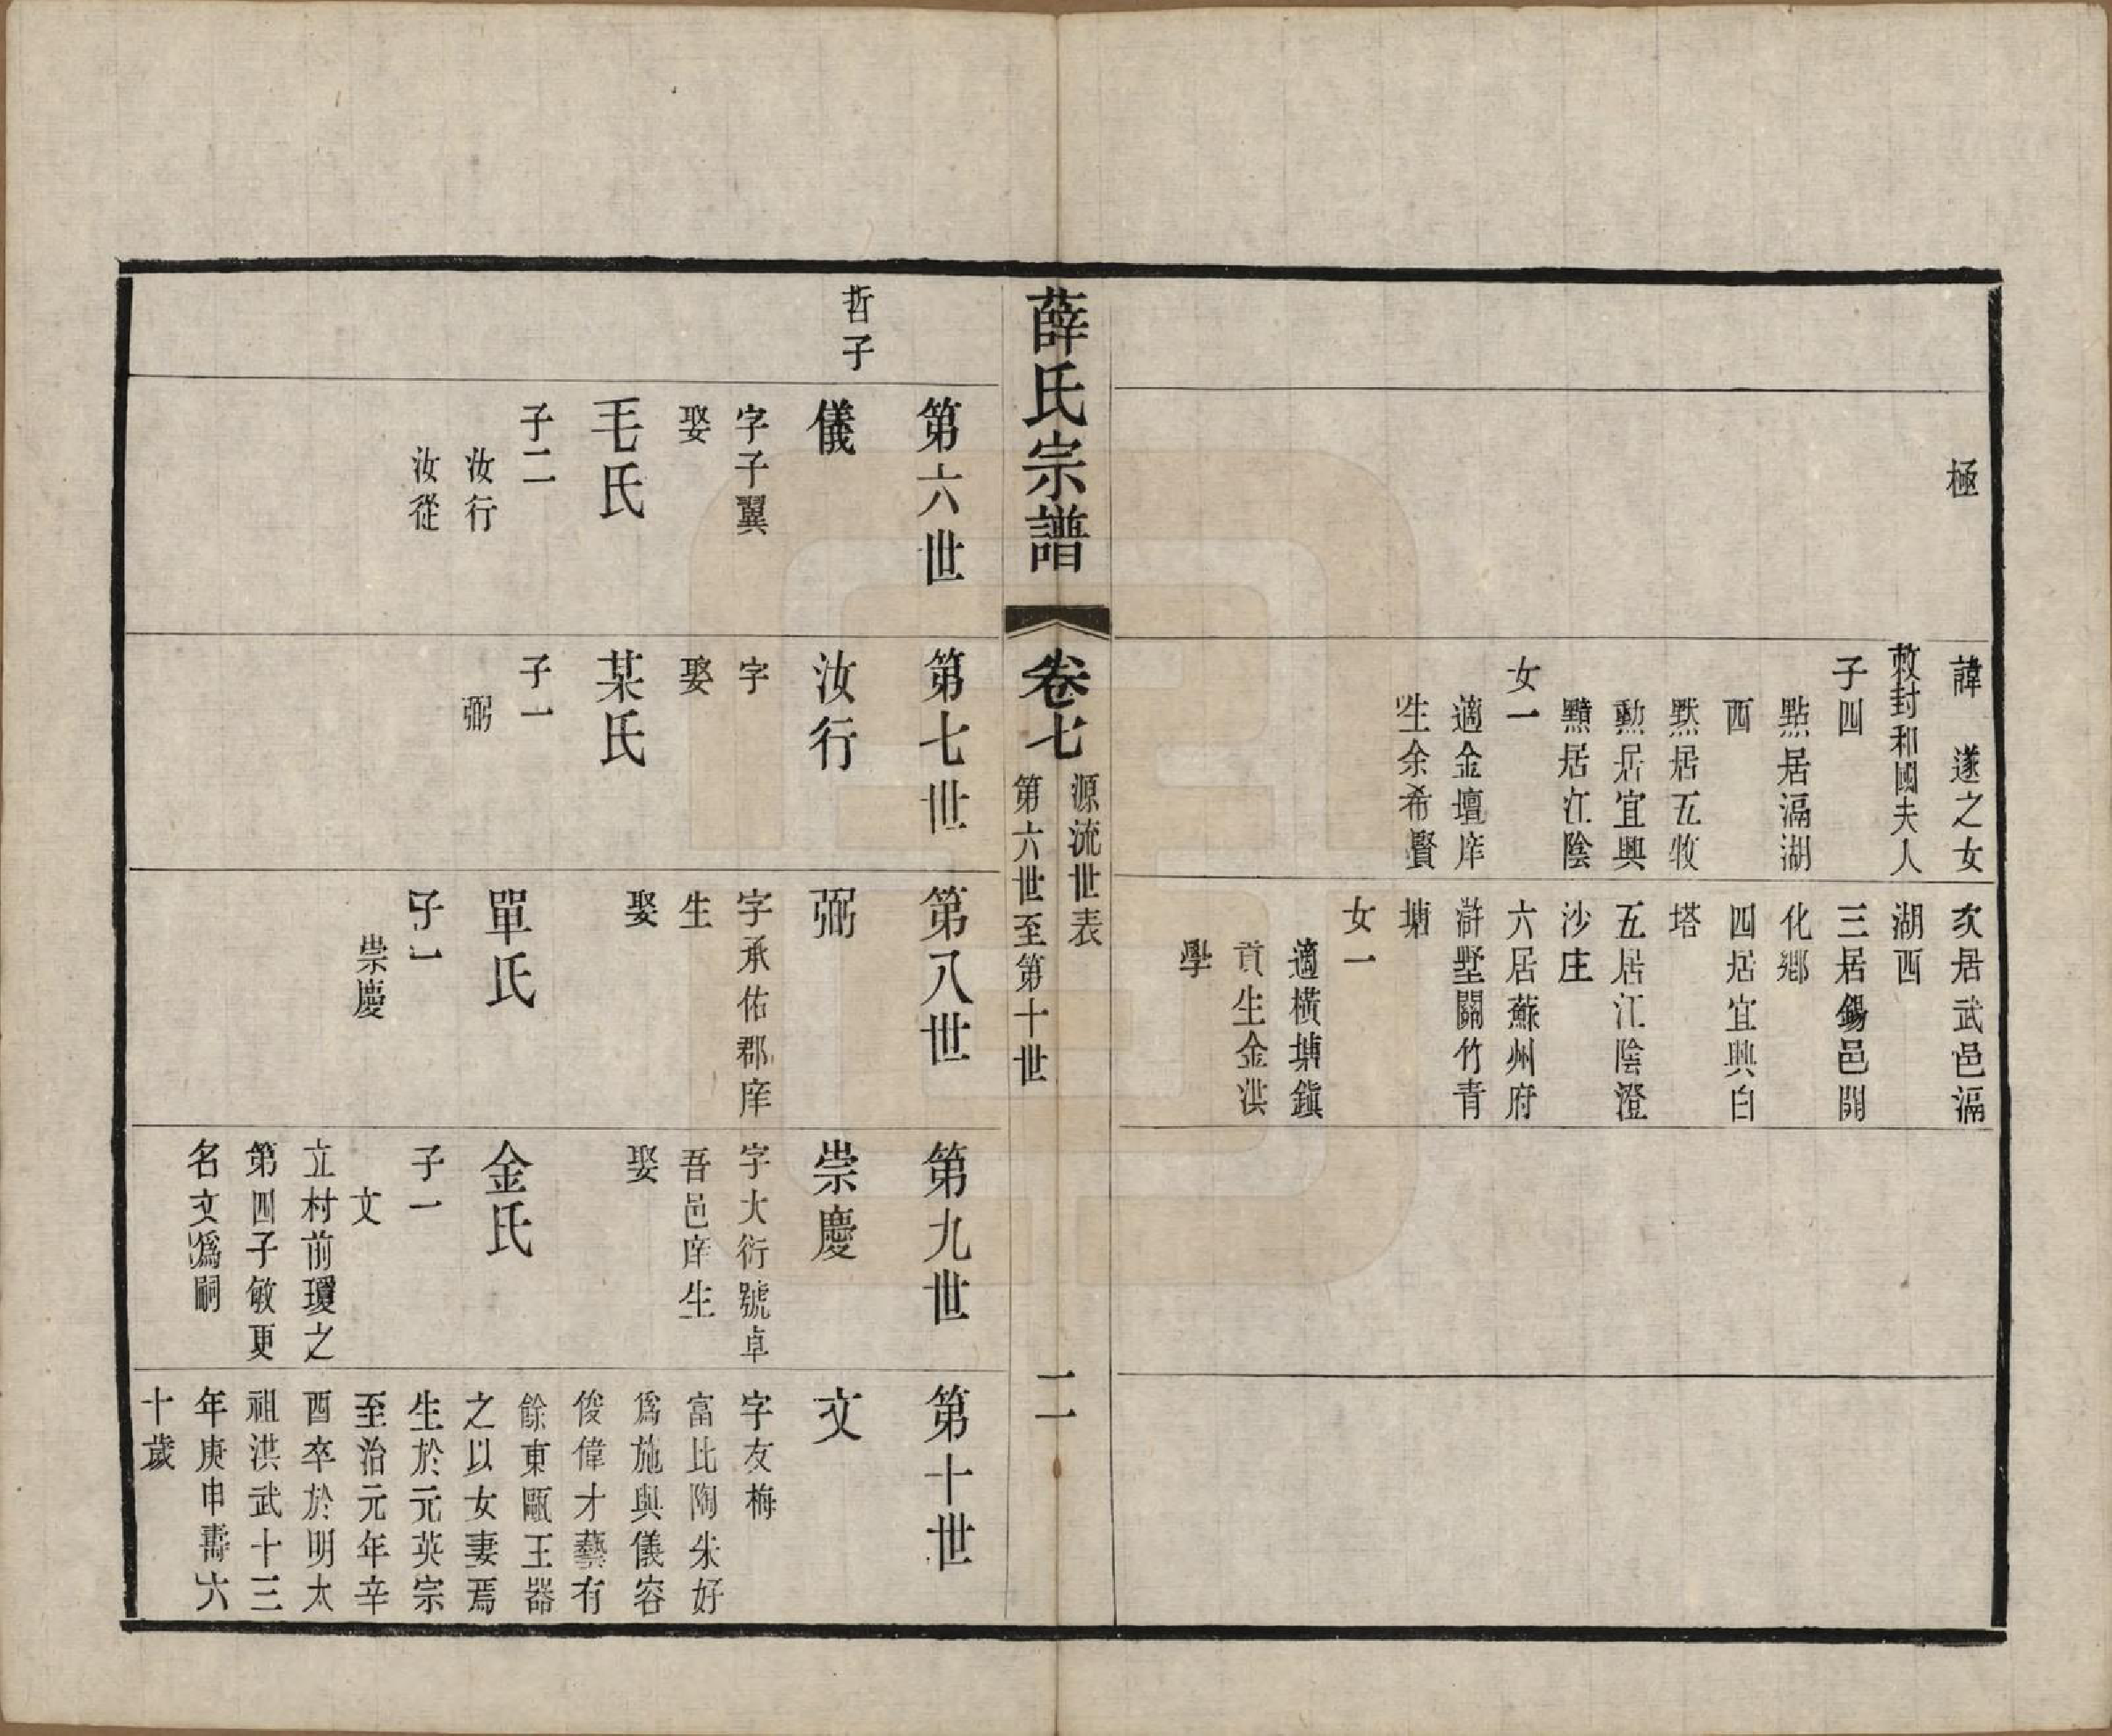 極
諱　遂之女
敕封和國夫人
子四
點居滆湖
西
默居五牧
勳居宜興
黷居江陰
女一
適金壇庠
生余希賢
次居武邑滆
湖西
三居錫邑開
化鄉
四居宜興白
塔
五居江陰澄
沙庄
六居蘇州府
滸墅關竹青
塘
女一
適橫塘鎮
貢生金洪
學
薛氏宗譜
卷七
源流世表
第六世至第十世
二
哲子
第六世
儀
字子翼
娶
毛氏
子二
汝行
汝從
第七世
汝行
字
娶
某氏
子一
弼
第八世
弼
字承佑郡庠
生
娶
單氏
子一
崇慶
第九世
崇慶
字大衍號卓
吾邑庠生
娶
金氏
子一
文
立村前瓊之
第四子敏更
名文爲嗣
第十世
文
字友梅
富比陶朱好
爲施與儀容
俊偉才藝有
餘東甌王器
之以女妻焉
生於元英宗
至治元年辛
酉卒於明太
祖洪武十三
年庚申壽六
十歲